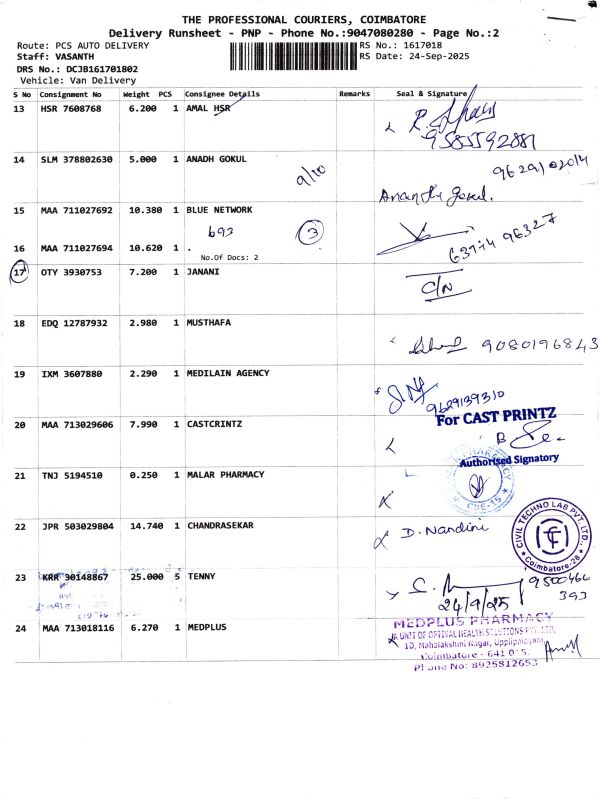 THE PROFESSIONAL COURIERS, COIMBATORE
Delivery Runsheet - PNP - Phone No.:9047080280 - Page No.:2
Route: PCS AUTO DELIVERY RS No.: 1617018
Staff: VASANTH RS Date: 24-Sep-2025
DRS No.: DCJB161701802
Vehicle: Van Delivery
S No Consignment No Weight PCS Consignee Details Remarks Seal & Signature
13 HSR 7608768 6.200 1 AMAL HSR
9585592881
14 SLM 378802630 5.000 1 ANADH GOKUL
9/10
9629102014
15 MAA 711027692 10.380 1 BLUE NETWORK
693 3
16 MAA 711027694 10.620 1 .
No.Of Docs: 2
63774 96327
17 OTY 3930753 7.200 1 JANANI
C/N
18 EDQ 12787932 2.980 1 MUSTHAFA
9080196843
19 IXM 3607880 2.290 1 MEDILAIN AGENCY
9629139310
20 MAA 713029606 7.990 1 CASTCRINTZ
For CAST PRINTZ
Authorised Signatory
21 TNJ 5194510 0.250 1 MALAR PHARMACY
CBE-15
22 JPR 503029804 14.740 1 CHANDRASEKAR
D. Nandini
CIVIL TECHNO LAB PVT. LTD.,
Coimbatore-28
23 KRR 30148867 25.000 5 TENNY
24/9/25
9500466
393
24 MAA 713018116 6.270 1 MEDPLUS
MEDPLUS PHARMACY
A UNIT OF OPTIVAL HEALTH SOLUTIONS PVT. LTD.
1D, Mahalakshmi Nagar, Uppilipalayam,
Coimbatore - 641 015.
Phone No: 8925812653